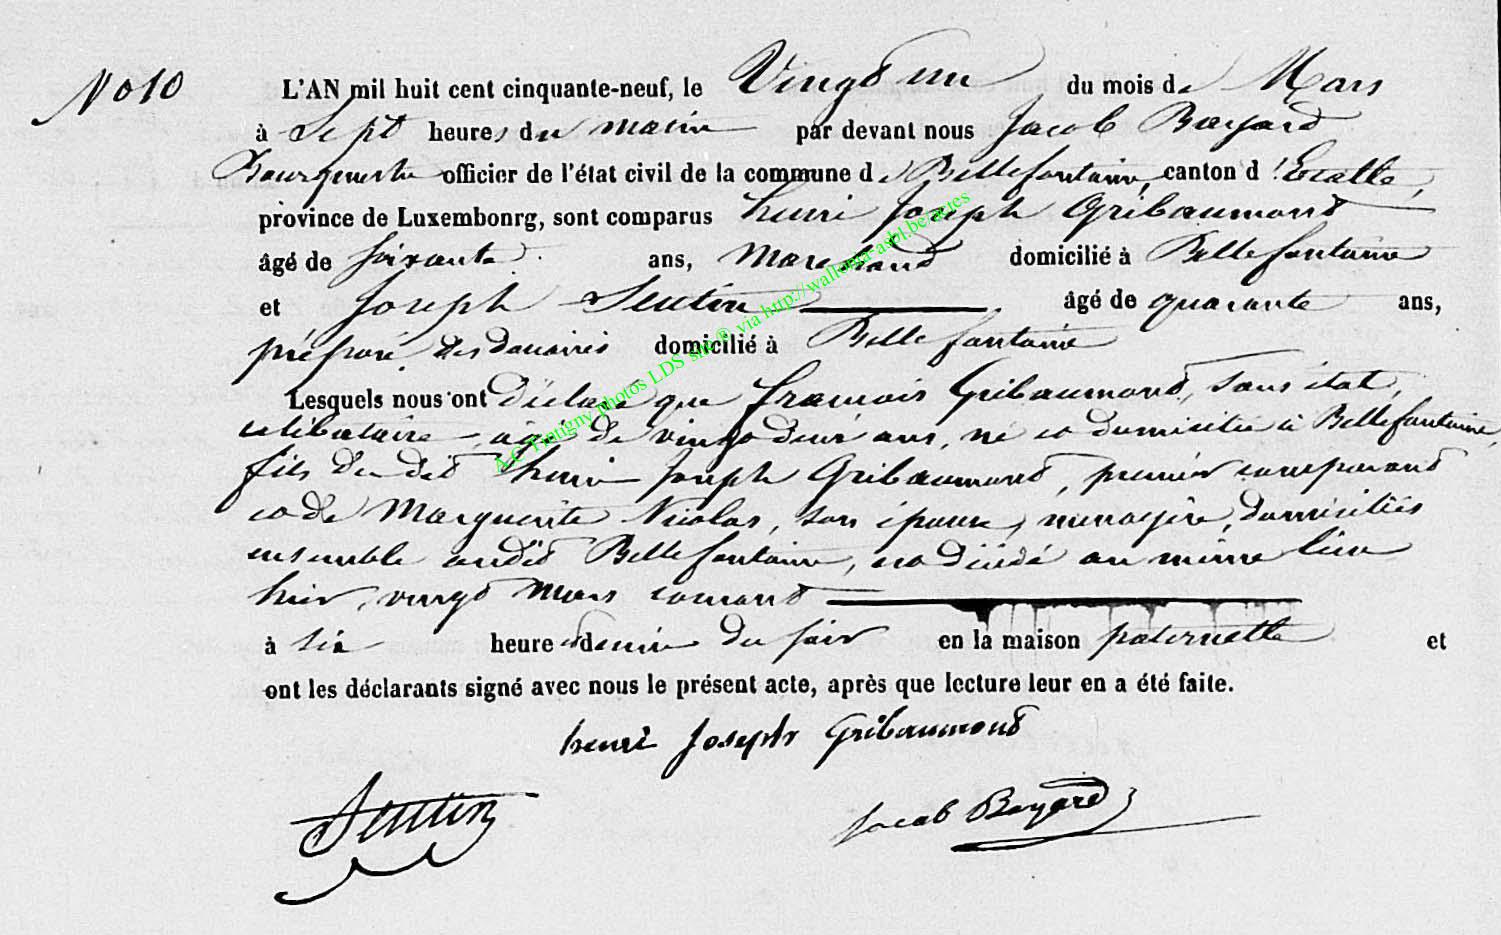 No 10
L'AN mil huit cent cinquante-neuf, le Vingt un du mois de Mars
à Sept heures du matin par devant nous Jacob Bayard
Bourgmestre officier de l'état civil de la commune de Bellefontaine, canton d'Etalle,
province de Luxembonrg, sont comparus henri Joseph Gribaumont
âgé de soixante ans, Marchand domicilié à Bellefontaine
et Joseph Seutin âgé de quarante ans,
préposé des douanes domicilié à Bellefontaine
Lesquels nous ont déclaré que francois Gribaumont, sans état,
celibataire, agé de vingt deux ans, né et domicilié à Bellefontaine,
fils du dit henri Joseph Gribaumont, premier comparant
et de Marguerite Nicolas, son épouse, menagère, domiciliés
ensemble audit Bellefontaine, est décédé au même lieu
hier, vingt Mars courant
à six heure et demie du soir en la maison paternelle et
ont les déclarants signé avec nous le présent acte, après que lecture leur en a été faite.
henri Joseph Gribaumont
Seutin Jacob Bayard
A.C. Tintigny photos LDS site ® via http://wallonia-asbl.be/actes